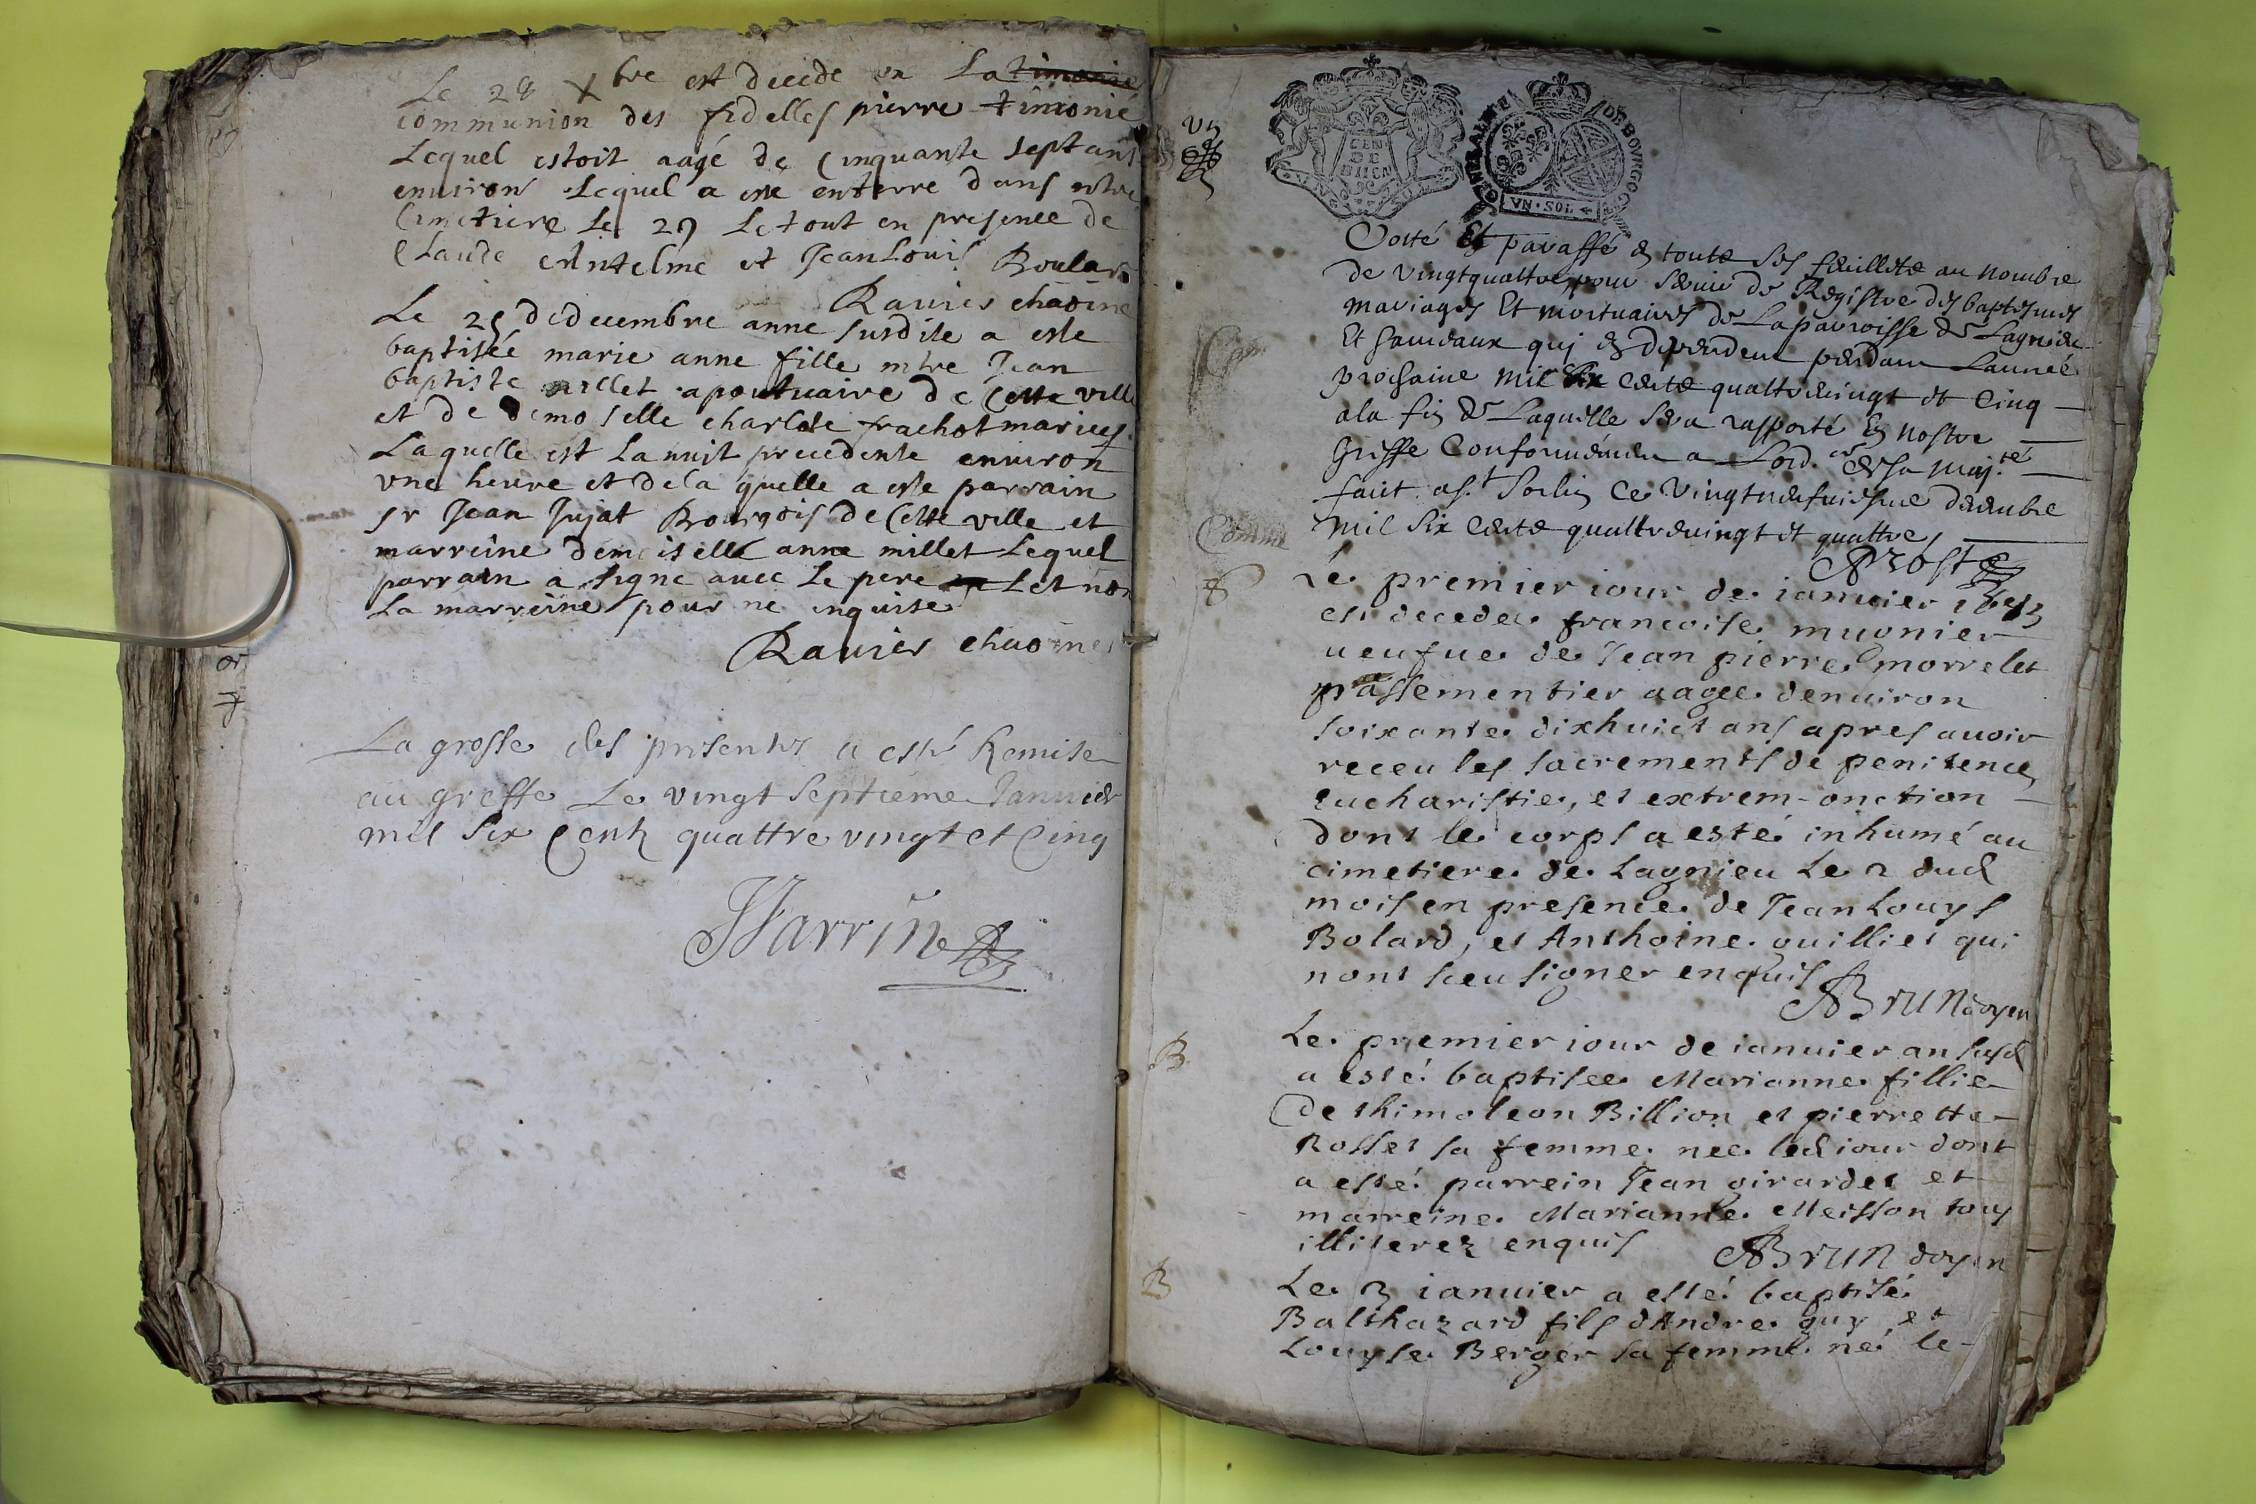 Le 28 Xbre est decide en La timonie
communion des fidelles pierre timonié
Lequel estoit aagé de Cinquante sept ans
environ Lequel a este enterre dans ntre
Cimetiere Le 29 Le tout en presence de
Claude Antelme et Jean Louis Boulard
Ravier chaoine
Le 29 de decembre anne susdite a este
baptisée marie anne fille mtre Jean
baptiste millet apoutuaire de Cette ville
et de demoselle charlote frachot maries
Laquelle est La nuit precedente environ
vne heure et dela quelle a este parrain
sr Jean Jujat Bourgois de Cette ville et
marreine demoiselle anne millet Lequel
parrain a signe avec Le pere et non
La marreine pour ne inquise
Ravier chaoine
La grosse des presentes a esté Remise
au greffe Le vingt septieme Janvier
mil Six Centz quattre vingt et Cinq
Warrin
vn
GEN DE BUEN
GENERALITE DE BOURGOGNE
VN·SOL
Cotté Et paraffé en toute ses feuillets au nombre
de vingtquattre pour servir de Registre des baptesmes
mariages Et mortuaires de La parroisse de Lagnieu
Et hameaux qui en dependent pendant Lannée
prochaine mil six cents quattrevingt et Cinq
a la fin de Laquelle sera rapporté en nostre
Greffe Conformément a Lord.ce de sa Maj.té
faict a St Sorlin ce vingtneufuiesme decembre
mil six cents quattrevingt et quattre
AProst
Le premier iour de ianuier 1685
est decedee francoise muonier
ueufue de Jean pierre morrelet
passementier aagee denuiron
soixante dixhuict ans apres auoir
receu les sacrements de penitence
eucharistie, et extrem-onction
dont le corps a esté inhumé au
cimetiere de Lagnieu Le 2 dud
mois en presence de Jean Louys
Bolard, et Anthoine guilliet qui
nont sceu signer enquis
ABrun doyen
B
Le premier iour de ianuier an susd
a esté baptisee Marianne fillie
de thimoleon Billion et pierrette
Rosset sa femme nee led iour dont
a esté parrein Jean girardet et
marreine Marianne Meisson tous
illiterez enquis
ABrun doyen
B
Le 3 ianuier a esté baptisé
Balthazard fils dAndre guy et
Louyse Berger sa femme né le-